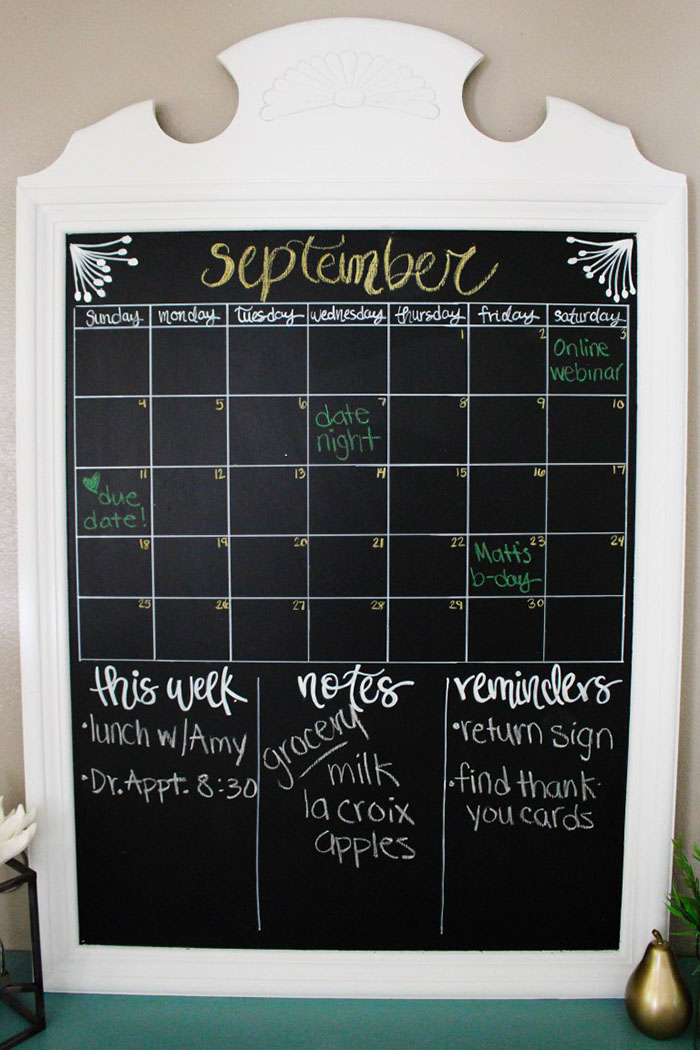 september
Sunday monday tuesday wednesday thursday friday saturday
1 2 3
Online
webinar
4 5 6 7 8 9 10
date
night
11 12 13 14 15 16 17
due
date!
18 19 20 21 22 23 24
Matt's
b-day
25 26 27 28 29 30
this week
•lunch w/Amy
•Dr. Appt. 8:30
notes
grocery
milk
la croix
apples
reminders
•return sign
•find thank
you cards